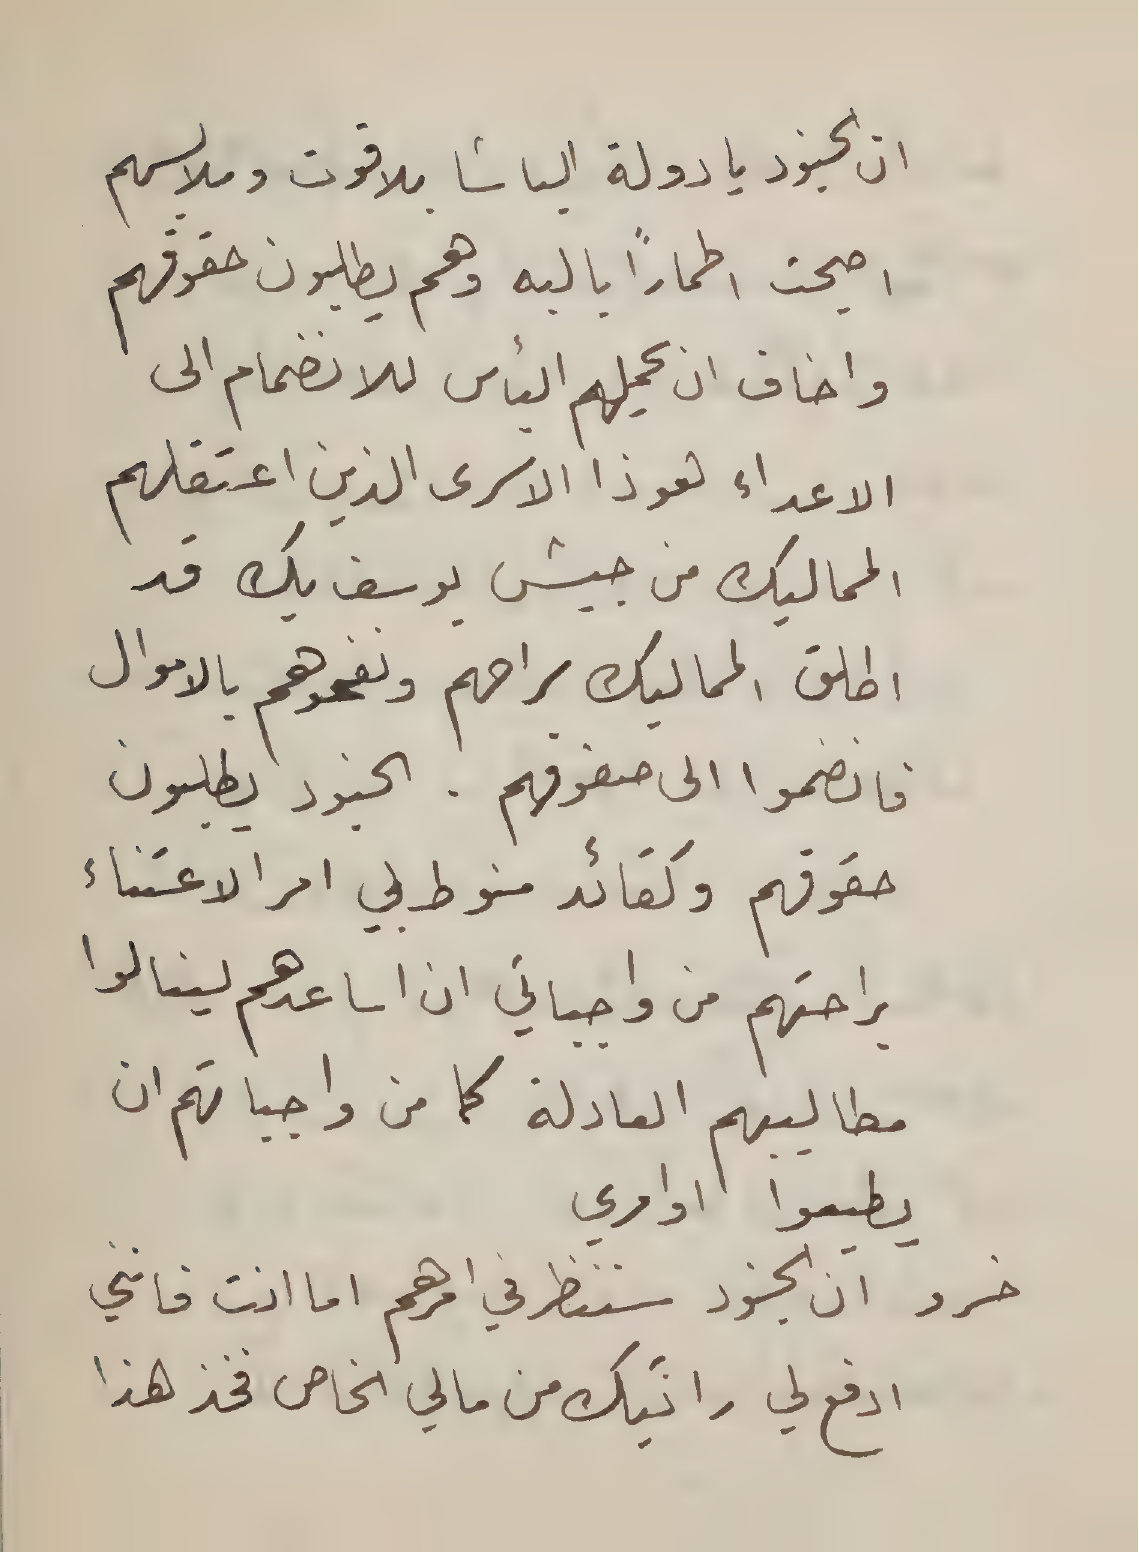 ان الجنود يا دولة الباشا بلا قوت وملابسهم
اصبحت اطمارًا باليه وهم يطلبون حقوقهم
واخاف ان يحملهم اليأس للانضمام الى
الاعداء فهوذا الاسرى الذين اعتقلهم
المماليك من جيش يوسف بك قد
اطلق المماليك سراحهم ونفحوهم بالاموال
فانضموا الى صفوفهم . الجنود يطلبون
حقوقهم وكقائد منوط بي امر الاعتناء
براحتهم من واجباتي ان اساعدهم لينالوا
مطاليبهم العادلة كما من واجباتهم ان
يطيعوا اوامري
خسرو ان الجنود سننظر في امرهم اما انت فانني
ادفع لي راتبك من مالي الخاص فخذ هذا